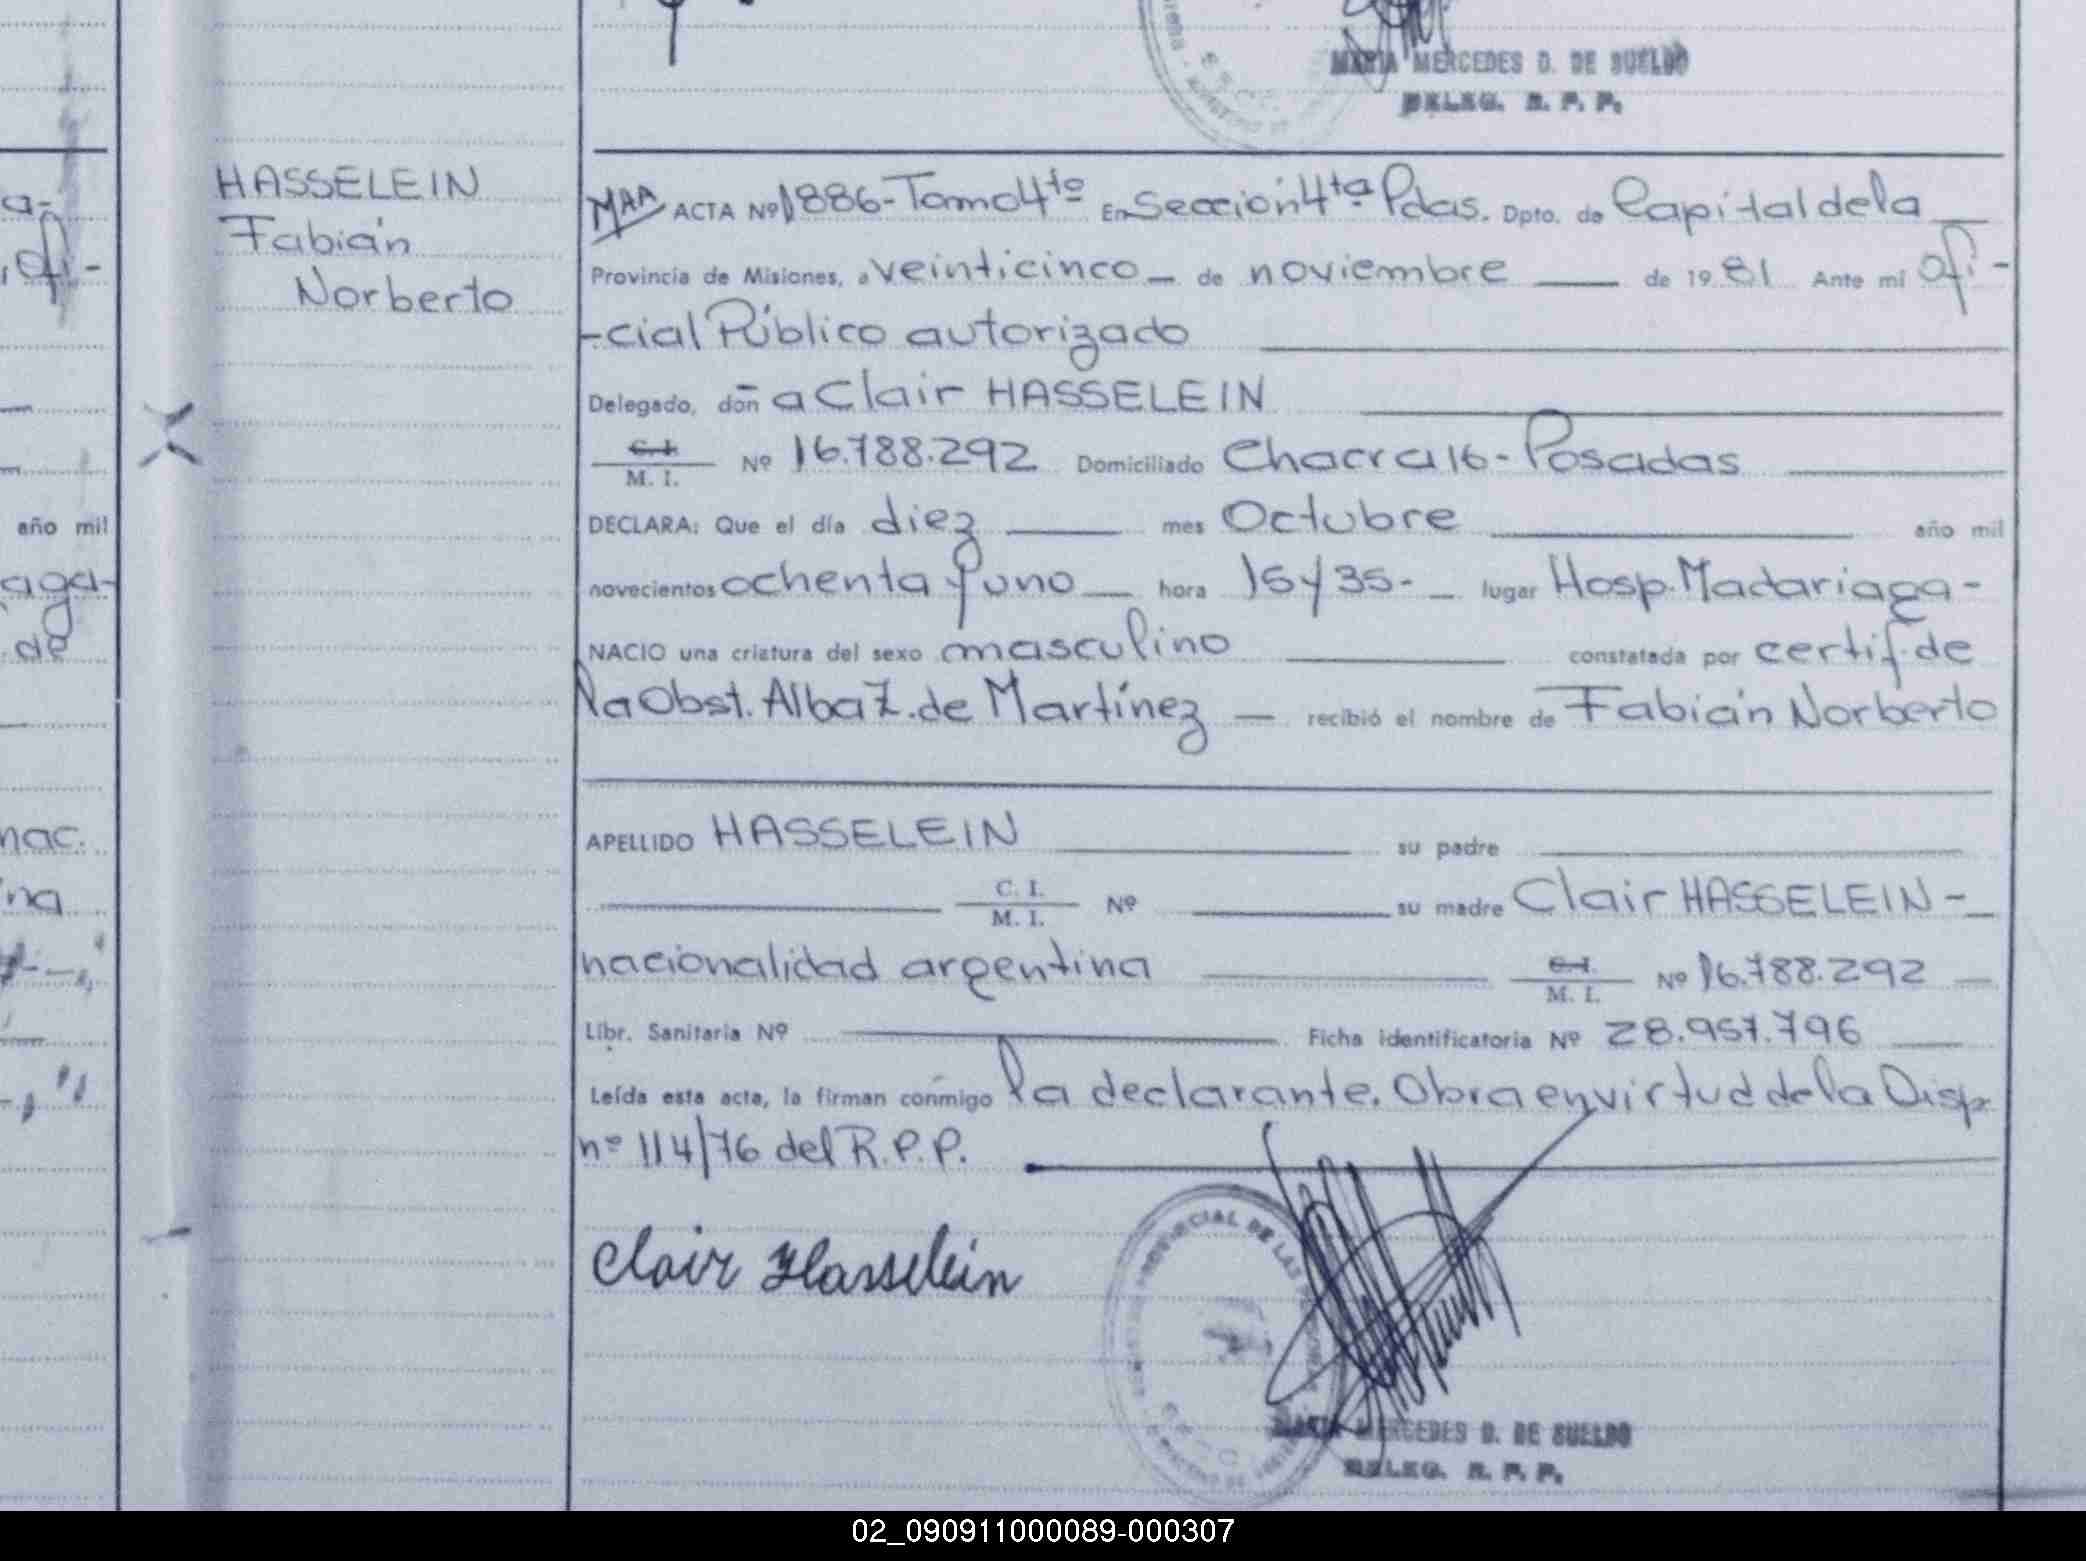 MARIA MERCEDES D. DE SUELDO
DELEG. R. P. P.
HASSELEIN
Fabián
Norberto
MAA ACTA Nº 1886-Tomo 4to En Sección 4ta Pdas. Dpto. de Capital de la
Provincia de Misiones, a veinticinco de noviembre de 19 81 Ante mí Ofi-
-cial Público autorizado
Delegado, doñ a Clair HASSELEIN
C.I.
M. I. Nº 16.788.292 Domiciliado Chacra 16 - Posadas
DECLARA: Que el día diez mes Octubre año mil
novecientos ochenta y uno hora 15 y 35- lugar Hosp. Madariaga-
NACIO una criatura del sexo masculino constatada por certif. de
la Obst. Alba Z. de Martínez recibió el nombre de Fabián Norberto
APELLIDO HASSELEIN su padre
C. I.
M. I. Nº su madre Clair HASSELEIN-
nacionalidad argentina C.I.
M. I. Nº 16.788.292
Libr. Sanitaria Nº Ficha identificatoria Nº 28.957.796
Leída esta acta, la firman conmigo la declarante. Obra en virtud de la Disp.
nº 114/76 del R.P.P.
Clair Hasselein
PROVINCIAL DE LAS
MARIA MERCEDES D. DE SUELDO
DELEG. R. P. P.
a-
, Ofi-
año mil
aga-
de
nac.
ina
02_090911000089-000307